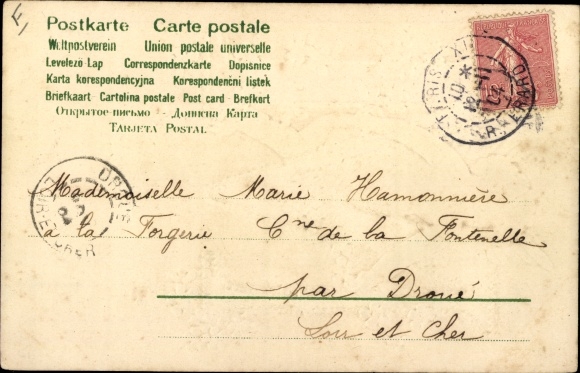 Postkarte Carte postale
Weltpostverein Union postale universelle
Levelezö-Lap Correspondenzkarte Dopisnice
Karta korespondencyjna Korespondenční listek
Briefkaart Cartolina postale Post card Brefkort
Открытое письмо – Дописна Карта
TARJETA POSTAL
PARIS XII
R. ERARD
Mademoiselle Marie Hamonnière
à la Forgerie Cne de la Fontenelle
par Droué
Loir et Cher